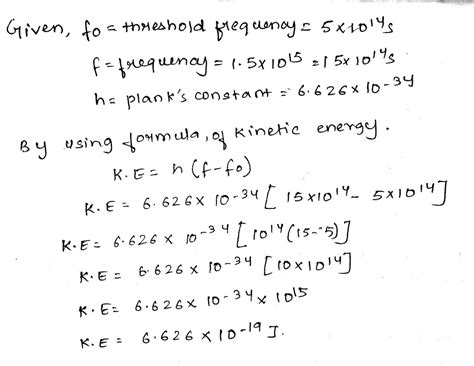 Given, fo = threshold frequency = 5×10¹⁴s
f = frequency = 1.5×10¹⁵ = 15×10¹⁴s
h = plank's constant = 6.626×10⁻³⁴
By using formula, of kinetic energy.
K.E = h (f-fo)
K.E = 6.626×10⁻³⁴ [15×10¹⁴ - 5×10¹⁴]
K.E = 6.626×10⁻³⁴ [10¹⁴(15-5)]
K.E = 6.626×10⁻³⁴ [10×10¹⁴]
K.E = 6.626×10⁻³⁴×10¹⁵
K.E = 6.626×10⁻¹⁹ J.